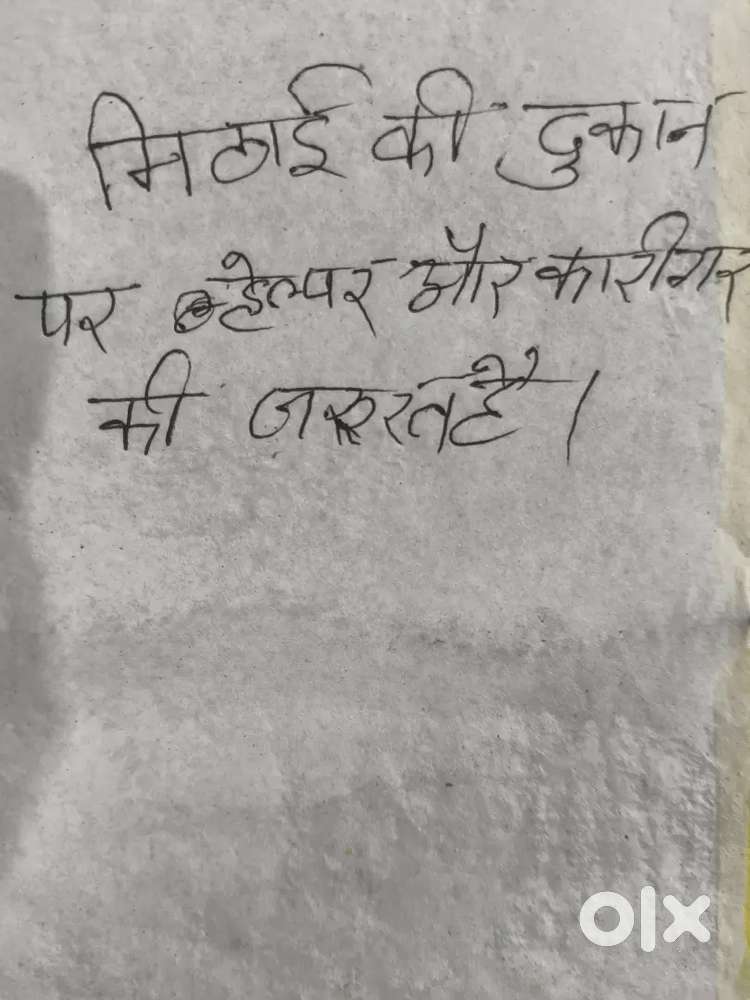 मिठाई की दुकान
पर हेल्पर और कारीगर
की जरूरत है।
olx